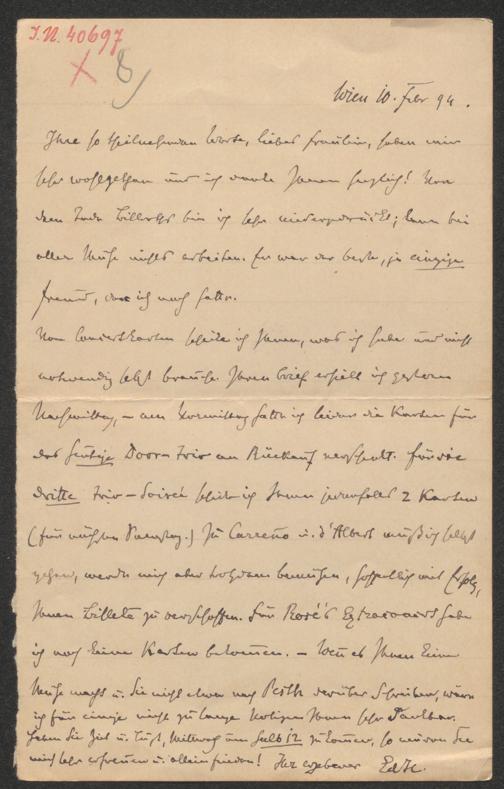 I.N. 40697
Wien 10. Febr 94.
Ihre so theilnehmenden Worte, liebes Fräulein, haben mir
sehr wohlgethan und ich danke Ihnen herzlich! Von
dem Tode Billroths bin ich sehr niedergedrückt; kann bei
aller Mühe nichts arbeiten. Er war der beste, ja einzige
Freund, den ich noch hatte.
Von Concertkarten theile ich Ihnen, was ich habe und nicht
nothwendig selbst brauche. Ihren Brief erhielt ich gestern
Nachmittag, – am Vormittag hatte ich leider die Karten für
das heutige Door-Trio an Rückauf verschenkt. Für die
dritte Trio-Soirée schicke ich Ihnen jedenfalls 2 Karten
(für nächsten Samstag.) Zu Carreño u. d'Albert muß ich selbst
gehen, werde mich aber trotzdem bemühen, hoffentlich mit Erfolg,
Ihnen Billete zu verschaffen. Für Rosé's Extrasoirée habe
ich noch keine Karten bekommen. – Wenn es Ihnen keine
Mühe macht u. Sie nicht etwa nach Pesth darüber schreiben, wäre
ich für einige nicht zu lange Notizen Ihnen sehr dankbar.
Haben Sie Zeit u. Lust, Mittwoch um halb 12 zu kommen, so würden Sie
mich sehr erfreuen u. allein finden! Ihr ergebener EdH.